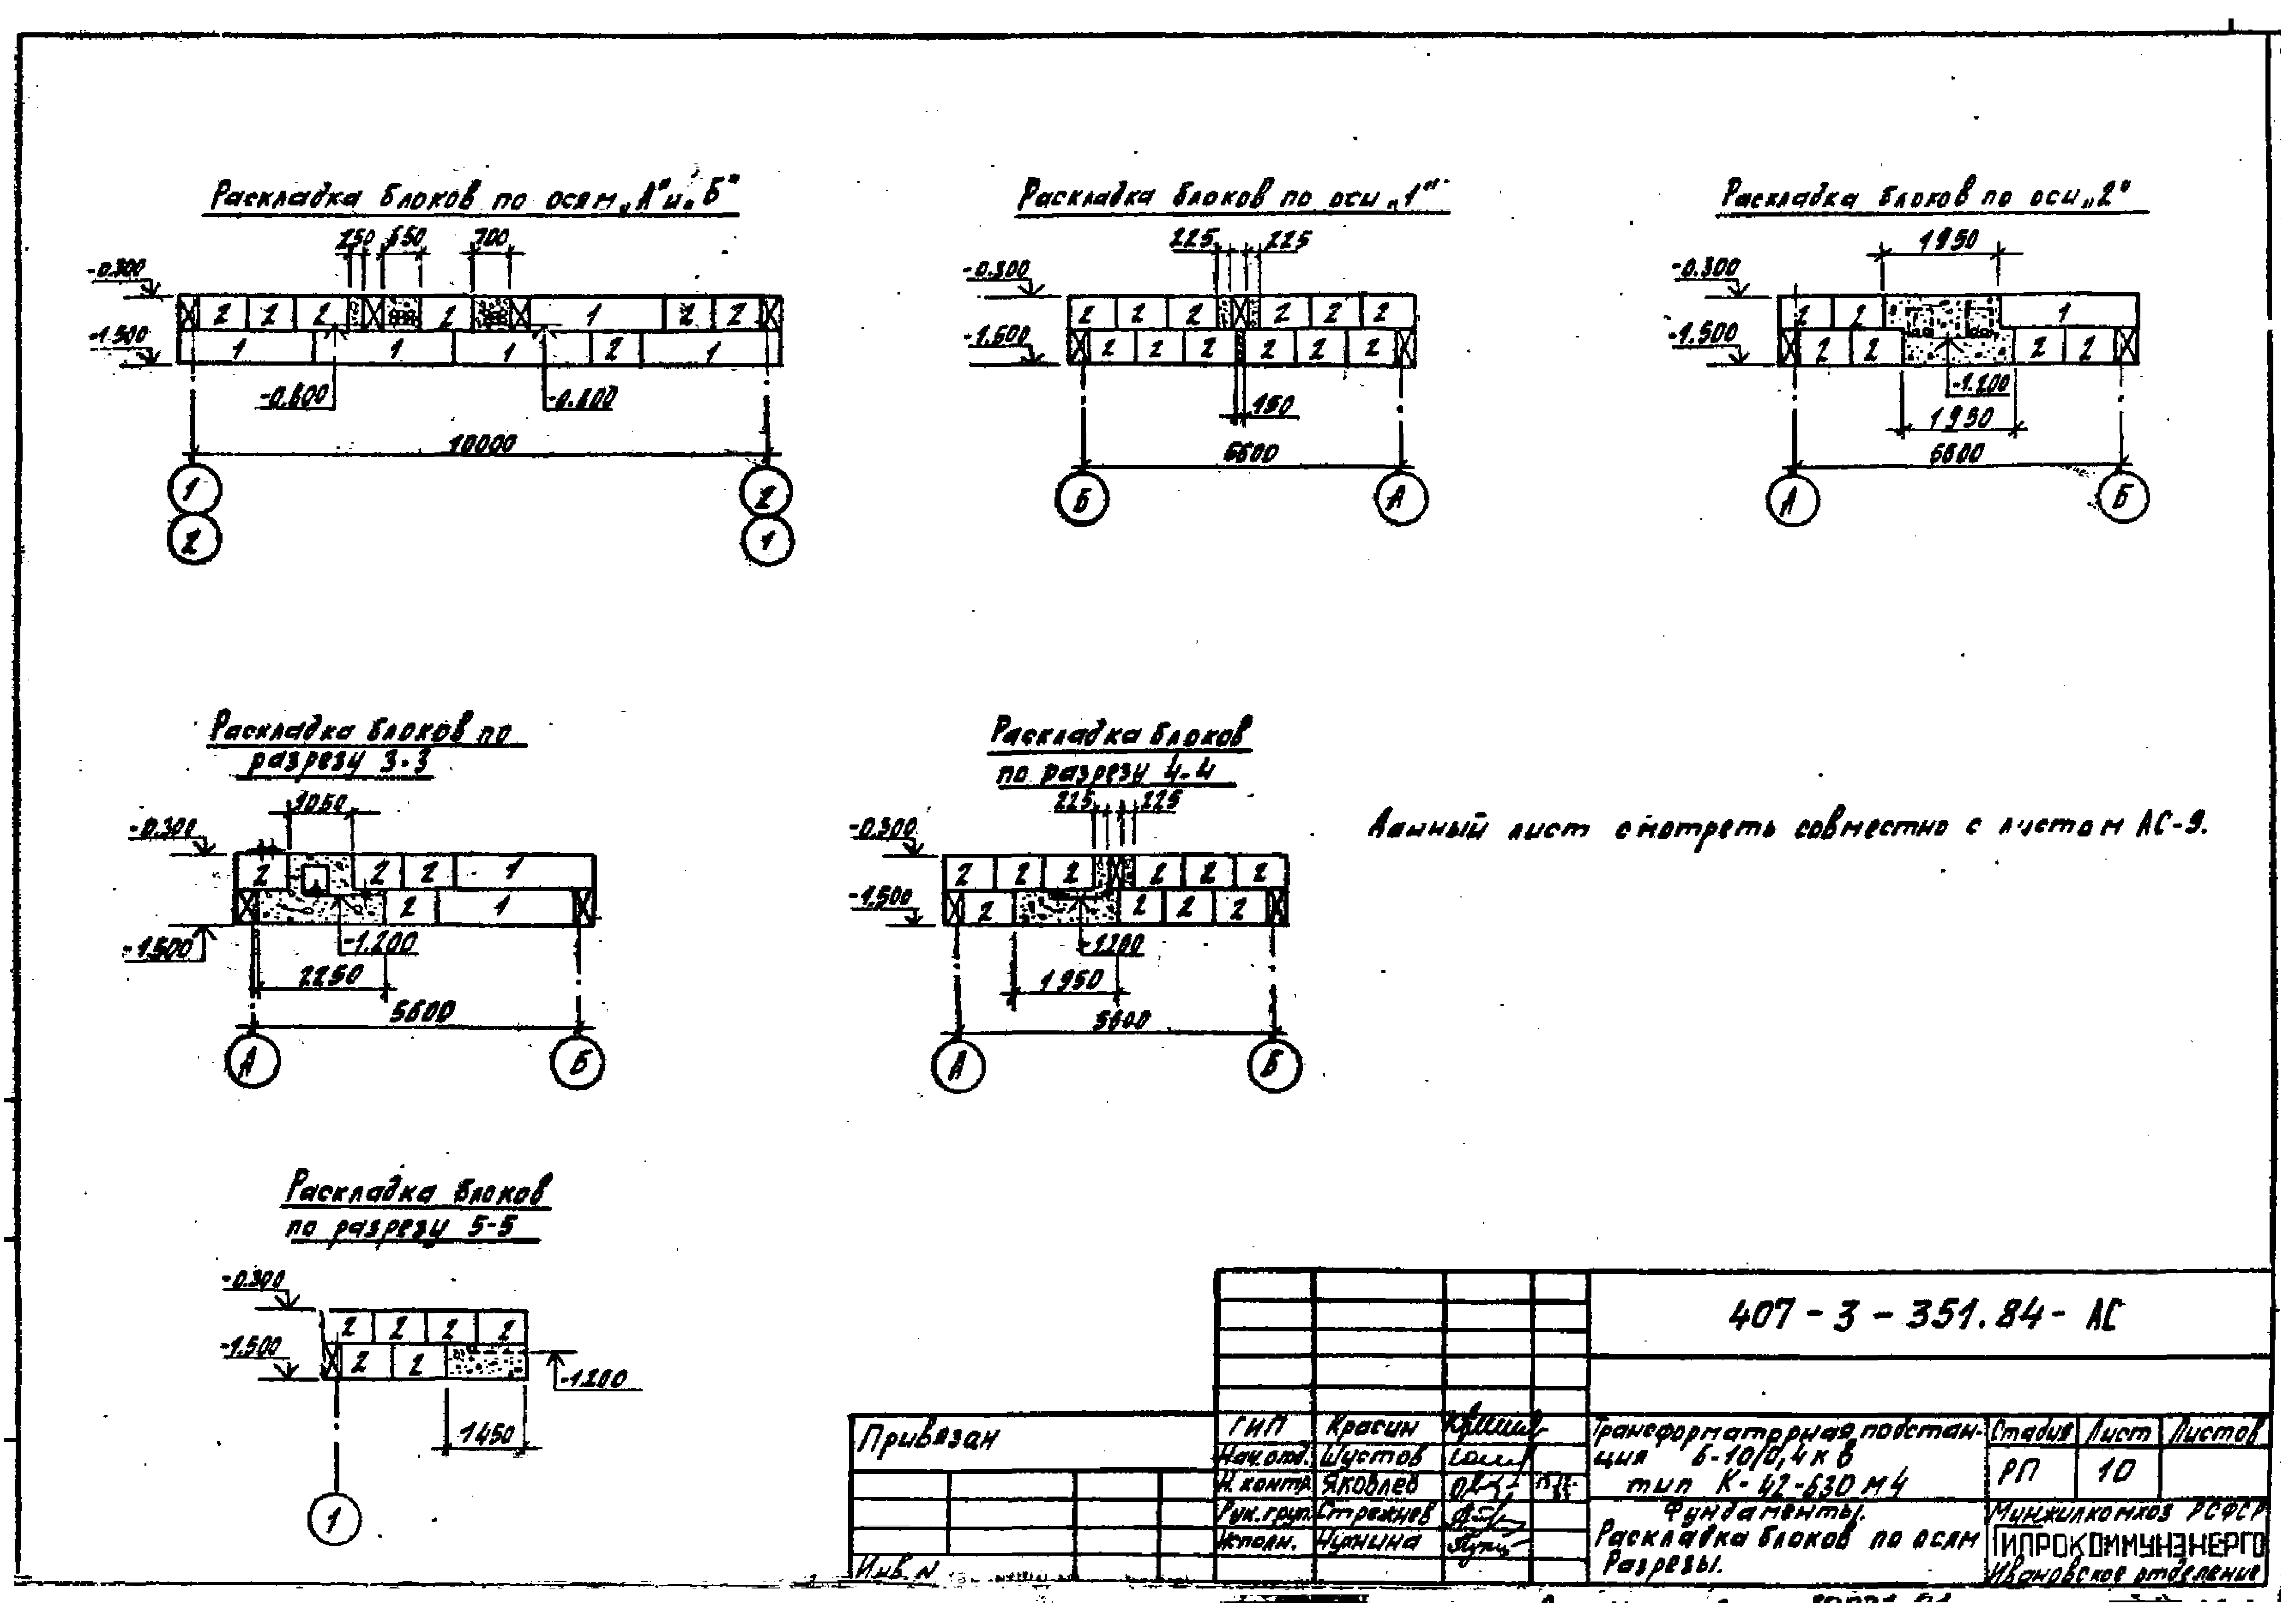 Раскладка блоков по осям „А" и „Б"
250 650 700
-0.300
2 2 2 2 1 2 2
-1.500
1 1 1 2 1
-0.600 -0.600
10000
1 2
2 1
Раскладка блоков по оси „1"
225 225
-0.300
2 2 2 2 2 2
-1.500
2 2 2 2 2 2
150
5600
Б А
Раскладка блоков по оси „2"
1950
-0.300
2 2 1
-1.500
2 2 2 2
-1.200
1950
5600
А Б
Раскладка блоков по
разрезу 3-3
1050
-0.300
2 2 2 1
2 1
-1.500
-1.200
2250
5600
А Б
Раскладка блоков
по разрезу 4-4
225 225
-0.300
2 2 2 2 2 2
-1.500
2 2 2 2
-1200
1950
5600
А Б
Данный лист смотреть совместно с листом АС-9.
Раскладка блоков
по разрезу 5-5
-0.300
2 2 2 2
-1.500
2 2
-1.200
1450
1
407-3-351.84-АС
Привязан
Инв. N
ГИП Красин
Нач. отд. Шустов
Н. контр. Яковлев
Рук. груп. Стрежнев
Исполн.
Трансформаторная подстан-
ция 6-10/0,4 кв
тип К-42-630 М4
Стадия Лист Листов
РП 10
Фундаменты.
Раскладка блоков по осям
Разрезы.
Минжилкомхоз РСФСР
ГИПРОКОММУНЭНЕРГО
Ивановское отделение